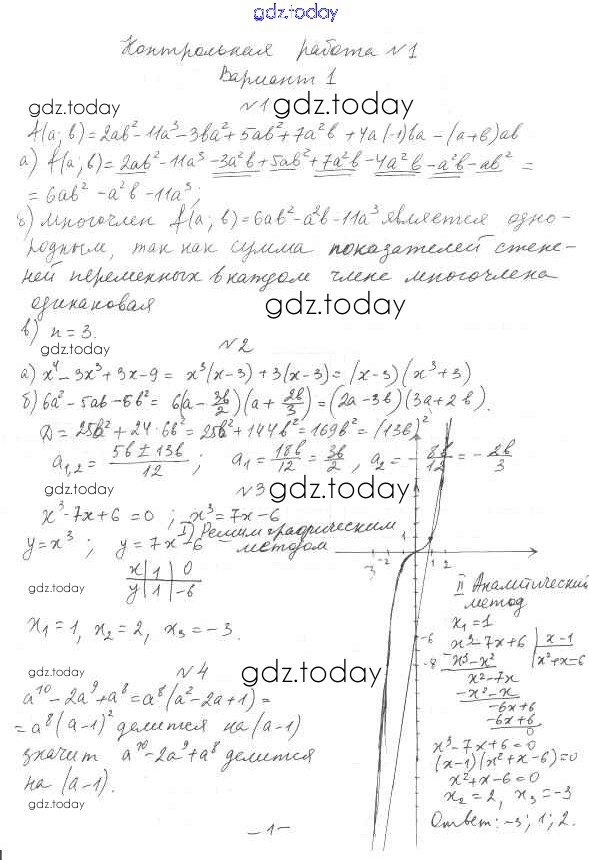 gdz.today
Контрольная работа №1
Вариант 1
№1
gdz.today gdz.today
A(a; b) = 2ab² - 11a³ - 3ba² + 5ab² + 7a²b + 4a(-1)ba - (a+b)ab
а) A(a; b) = 2ab² - 11a³ - 3a²b + 5ab² + 7a²b - 4a²b - a²b - ab² =
= 6ab² - a²b - 11a³;
б) многочлен A(a; b) = 6ab² - a²b - 11a³ является одно-
родным, так как сумма показателей степе-
ней переменных в каждом члене многочлена
одинаковая
gdz.today
в) n = 3.
gdz.today
№2
а) x⁴ - 3x³ + 3x - 9 = x³(x-3) + 3(x-3) = (x-3)(x³+3)
б) 6a² - 5ab - 6b² = 6(a - 3b/2)(a + 2b/3) = (2a - 3b)(3a + 2b).
D = 25b² + 24·6b² = 25b² + 144b² = 169b² = (13b)²
a₁,₂ = (5b ± 13b)/12; a₁ = 18b/12 = 3b/2, a₂ = -8b/12 = -2b/3
gdz.today
№3
gdz.today
x³ - 7x + 6 = 0; x³ = 7x - 6
I) Решим графическим
методом
y = x³; y = 7x - 6
x | 1 | 0
y | 1 | -6
gdz.today
x₁ = 1, x₂ = 2, x₃ = -3.
-3 -2 1 2
1
-6
-8
II Аналитический
метод
x₁ = 1
x³ - 7x + 6 | x - 1
x³ - x² | x² + x - 6
x² - 7x
x² - x
-6x + 6
-6x + 6
0
x³ - 7x + 6 = 0
(x-1)(x² + x - 6) = 0
x² + x - 6 = 0
x₂ = 2, x₃ = -3
Ответ: -3; 1; 2.
№4
gdz.today
gdz.today
a¹⁰ - 2a⁹ + a⁸ = a⁸(a² - 2a + 1) =
= a⁸(a-1)² делится на (a-1)
gdz.today
значит a¹⁰ - 2a⁹ + a⁸ делится
на (a-1).
gdz.today
-1-